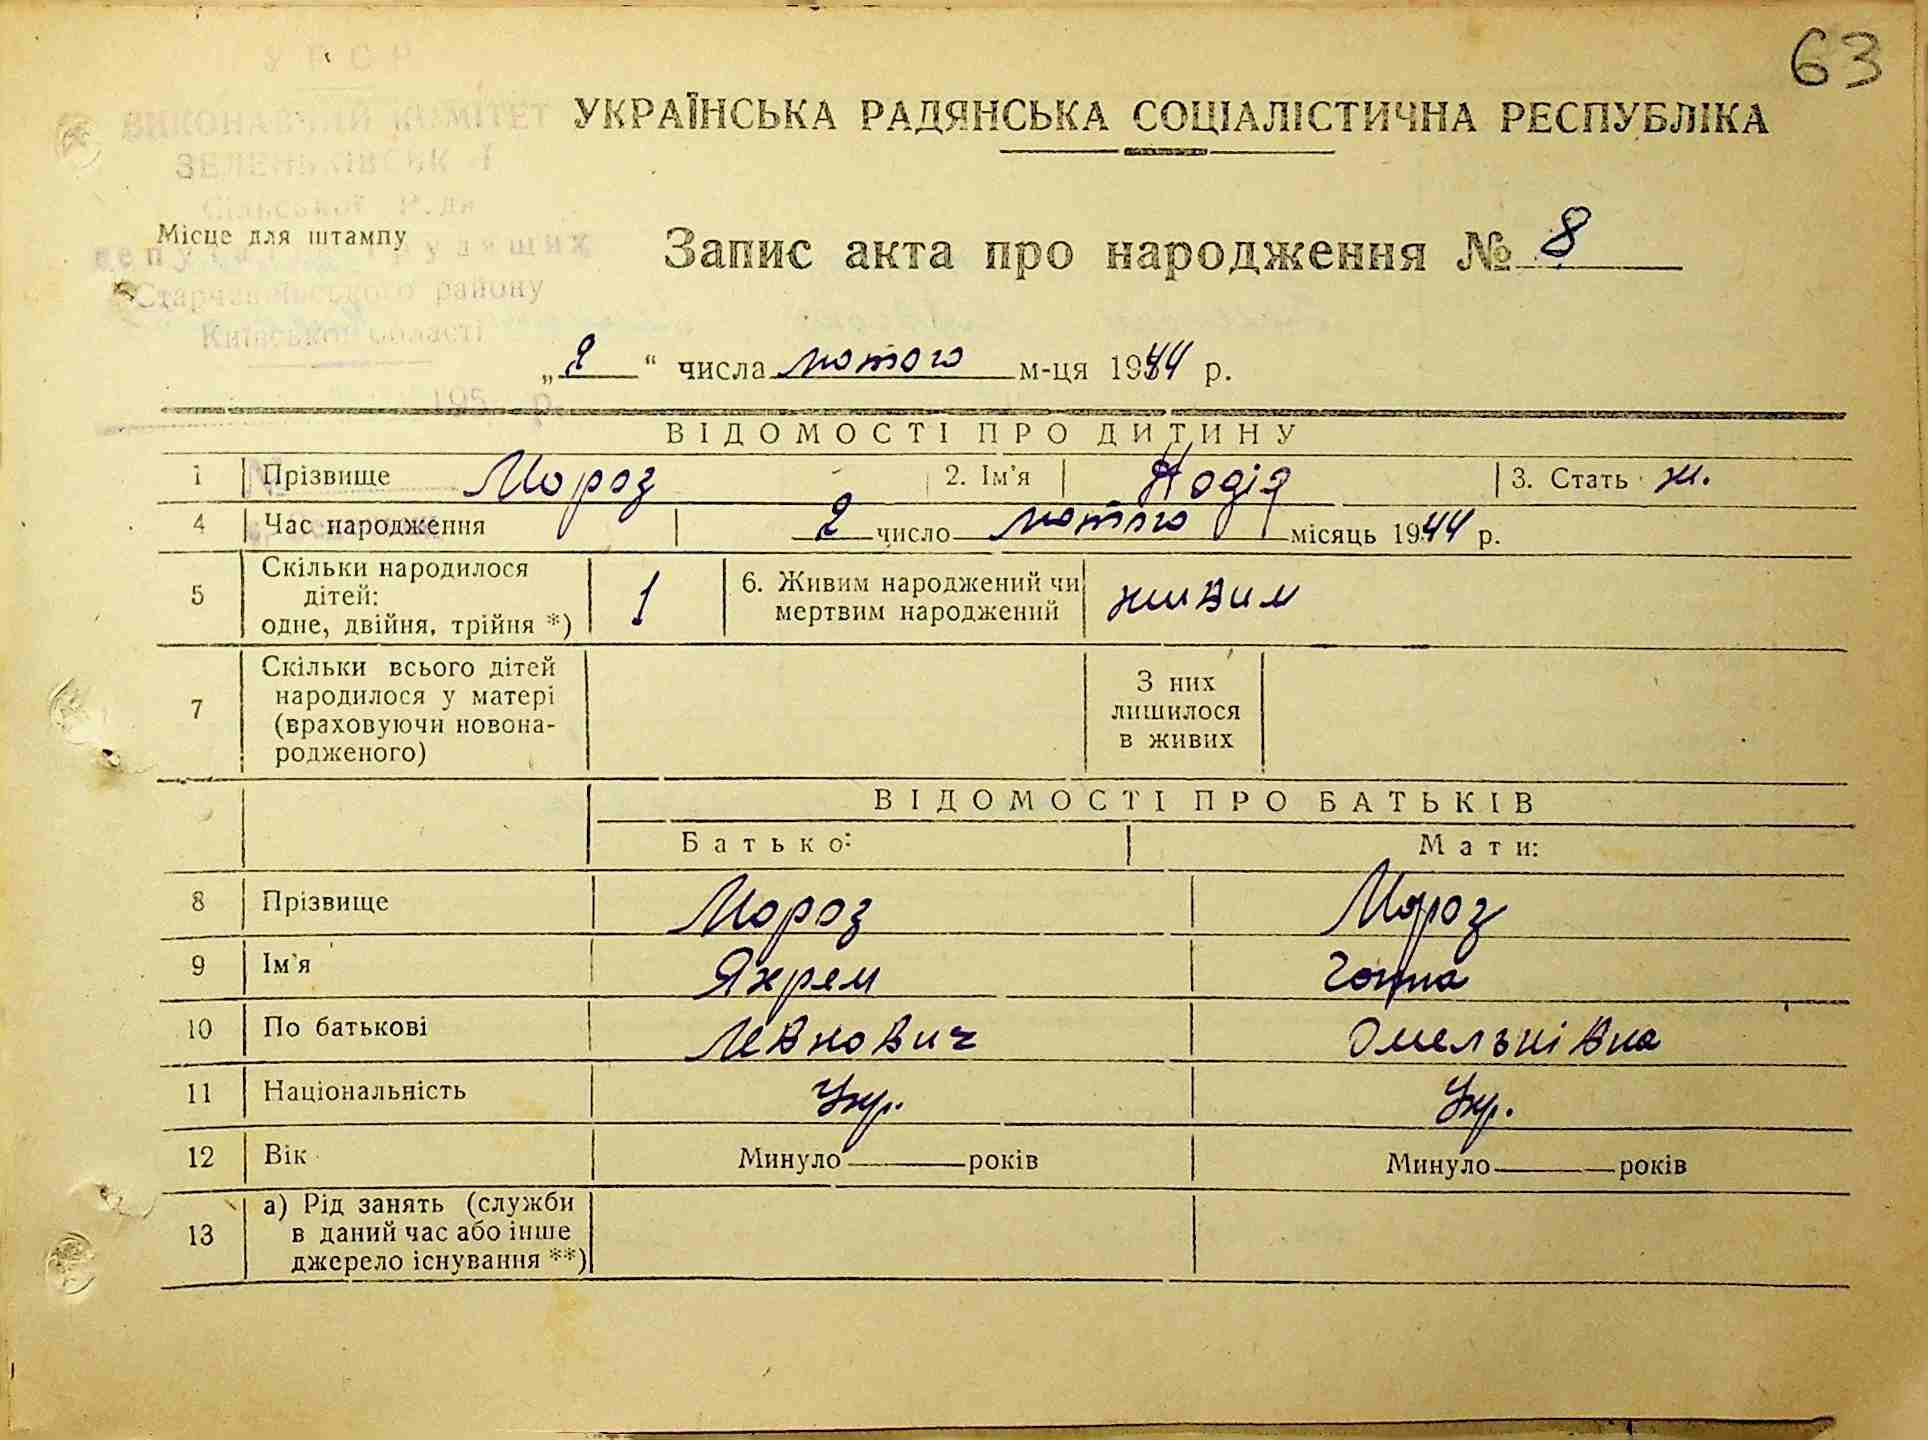 63
УРСР
ВИКОНАВЧИЙ КОМІТЕТ
УКРАЇНСЬКА РАДЯНСЬКА СОЦІАЛІСТИЧНА РЕСПУБЛІКА
ЗЕЛЕНЬКІВСЬК
Сільської
Місце для штампу
Запис акта про народження № 8
району
Київської області
„ 2 “ числа лютого м-ця 1944 р.
195 р.
ВІДОМОСТІ ПРО ДИТИНУ
1 Прізвище Мороз 2. Ім'я Надія 3. Стать ж.
4 Час народження 2 число лютого місяць 1944 р.
5 Скільки народилося
дітей:
одне, двійня, трійня *) 1 6. Живим народжений чи
мертвим народжений живим
7 Скільки всього дітей
народилося у матері
(враховуючи новона-
родженого)
З них
лишилося
в живих
ВІДОМОСТІ ПРО БАТЬКІВ
Батько: Мати:
8 Прізвище Мороз Мороз
9 Ім'я Яхрем Ганна
10 По батькові Омельнівна
11 Національність Укр. Укр.
12 Вік Минуло років Минуло років
13 а) Рід занять (служби
в даний час або інше
джерело існування **)